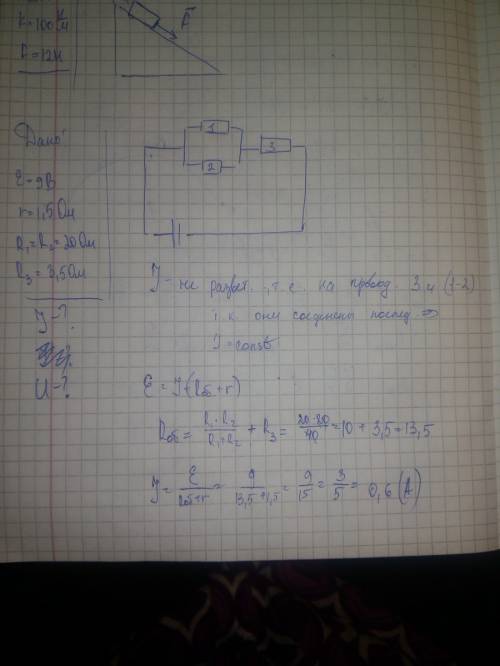 k=100 Н/м
F=12Н
F
Дано:
1
3
2
ℰ=9В
r=1,5Ом
R₁=R₂=20Ом
R₃=3,5Ом
J-?
U-?
J- не развет., т.е. на провод. 3 и (1-2)
т.к. они соединены послед. ⇒
J=const
ℰ=J(Rоб+r)
Rоб = R₁·R₂/R₁+R₂ + R₃ = 20·20/40 = 10 + 3,5 = 13,5
J = ℰ/Rоб+r = 9/13,5+1,5 = 9/15 = 3/5 = 0,6 (А)